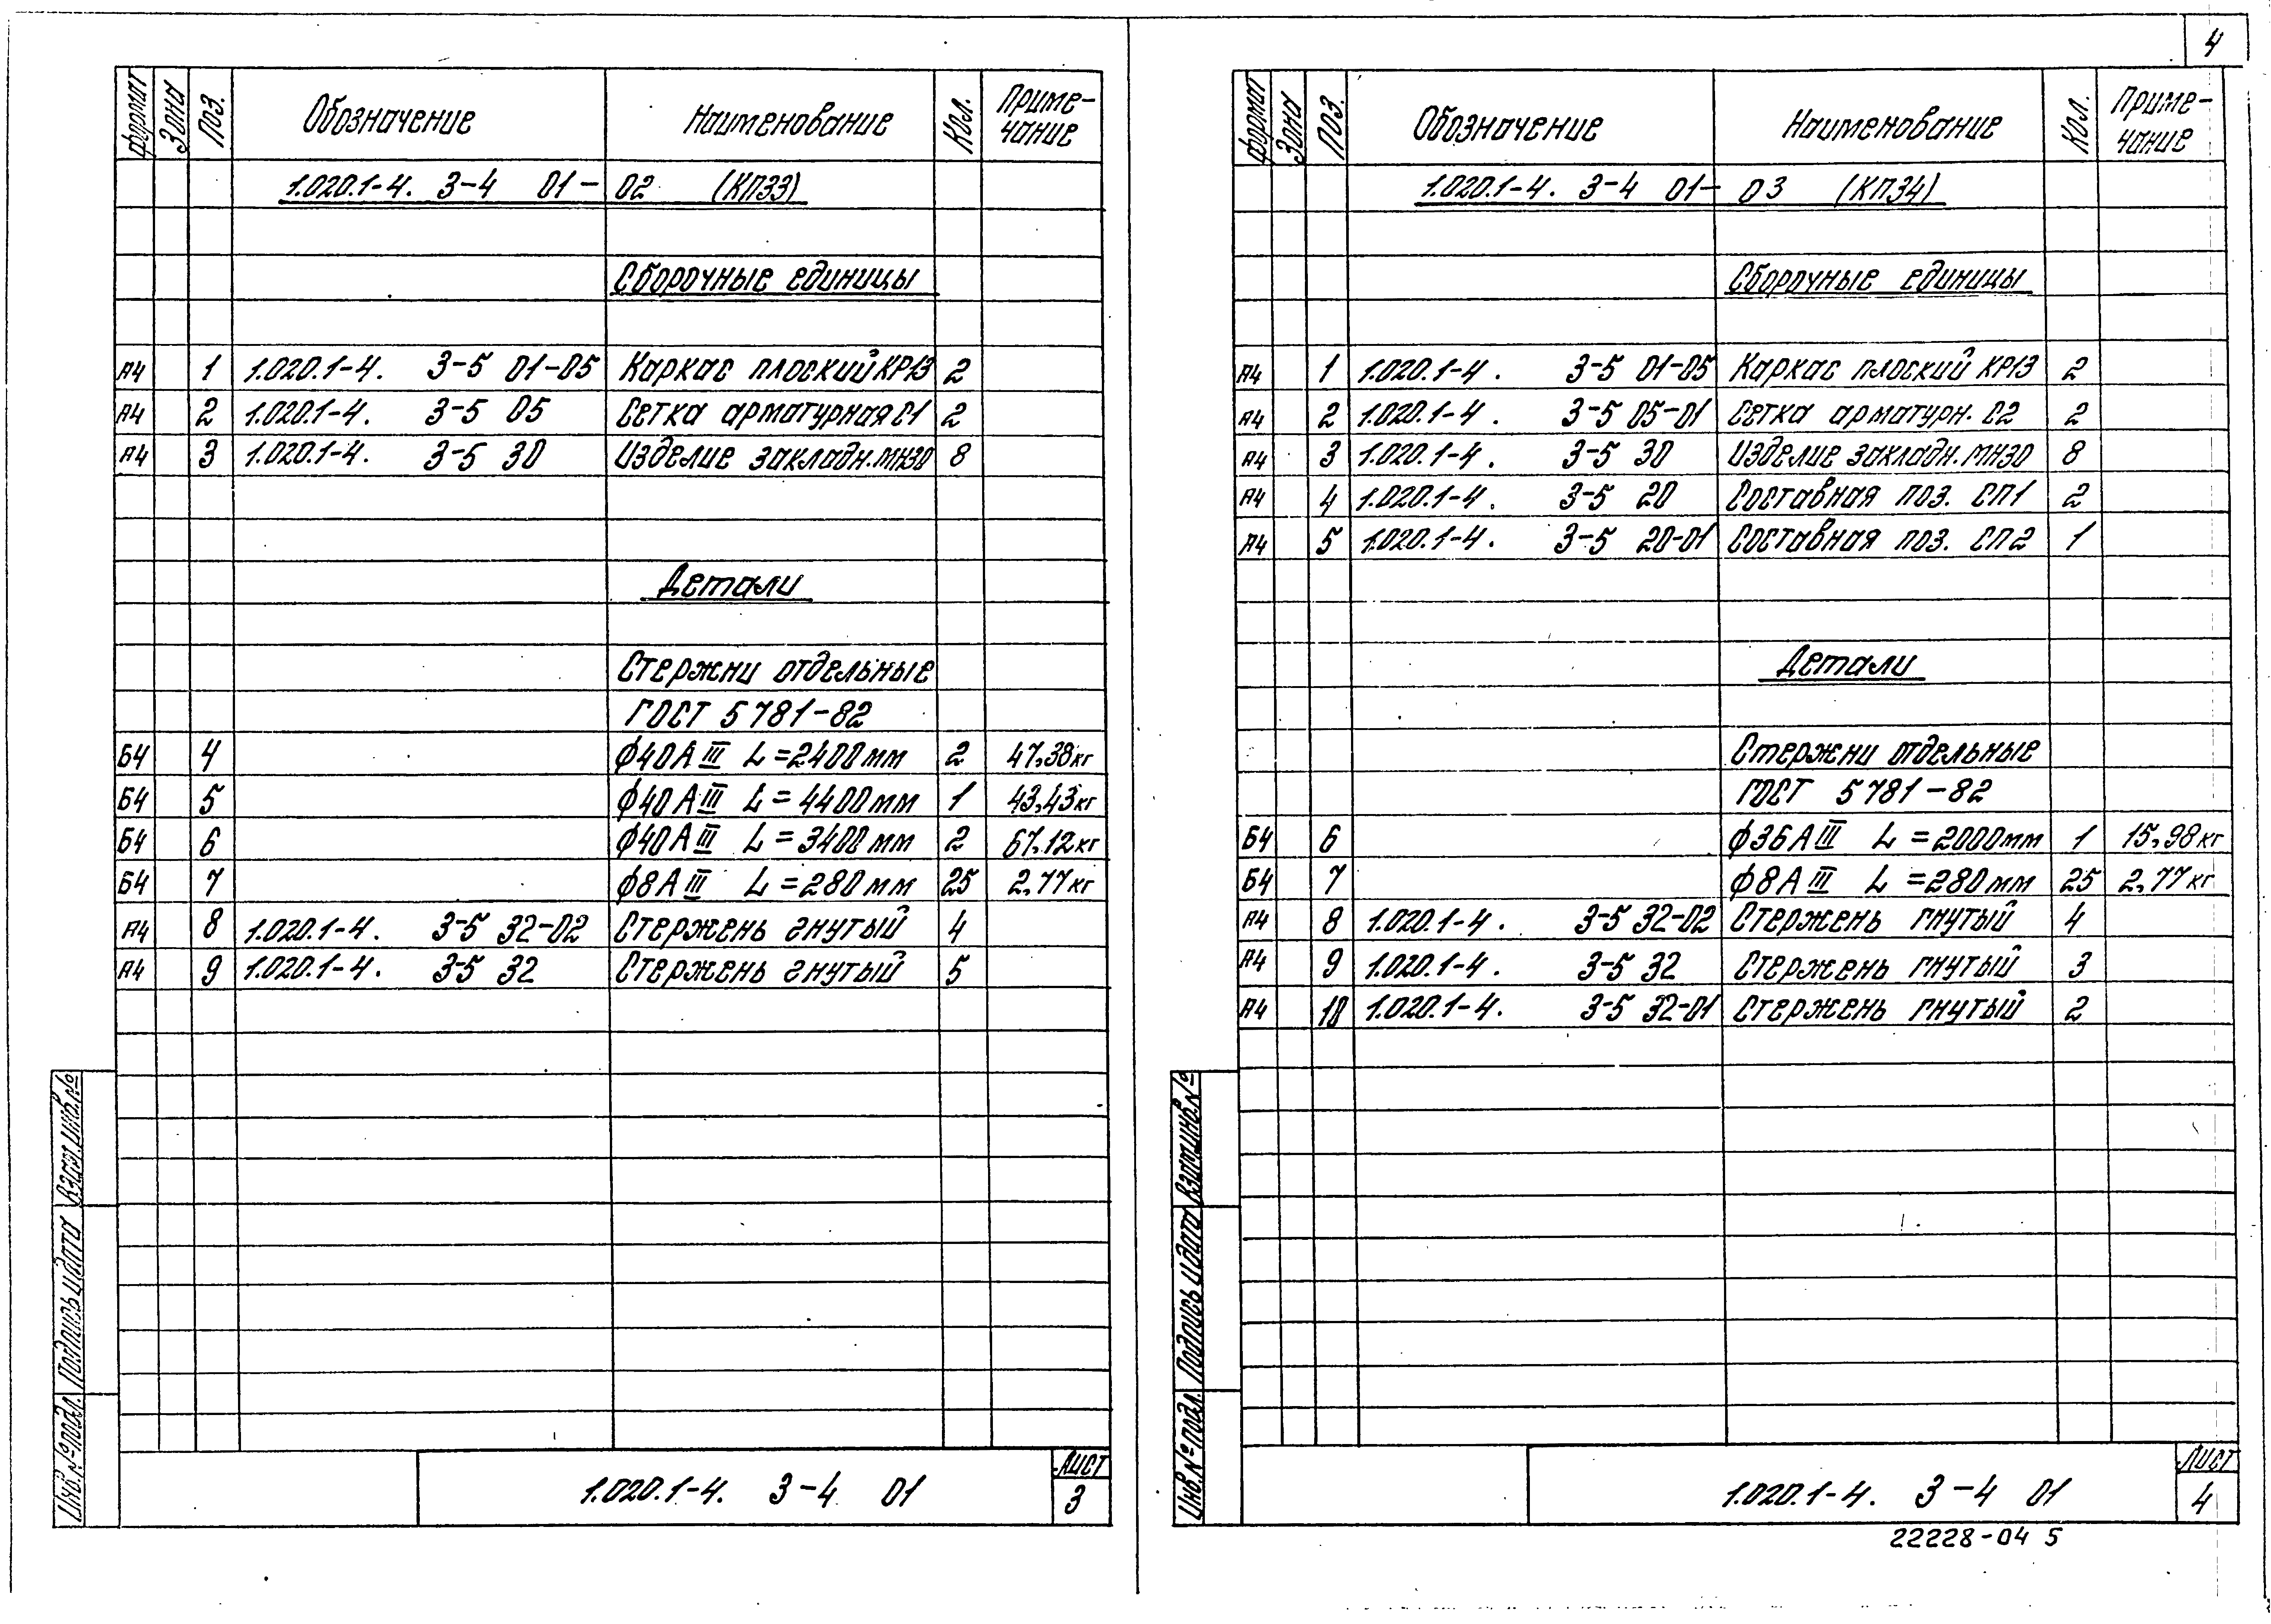 4
Формат Зона Поз. Обозначение Наименование Кол. Приме-
чание
1.020.1-4. 3-4 01-02 (КП33)
Сборочные единицы
А4 1 1.020.1-4. 3-5 01-05 Каркас плоский КР13 2
А4 2 1.020.1-4. 3-5 05 Сетка арматурная С1 2
А4 3 1.020.1-4. 3-5 30 Изделие закладн. МН30 8
Детали
Стержни отдельные
ГОСТ 5781-82
Б4 4 ϕ40АIII L=2400мм 2 47,38кг
Б4 5 ϕ40АIII L=4400мм 1 43,43кг
Б4 6 ϕ40АIII L=3400мм 2 67,12кг
Б4 7 ϕ8АIII L=280мм 25 2,77кг
А4 8 1.020.1-4. 3-5 32-02 Стержень гнутый 4
А4 9 1.020.1-4. 3-5 32 Стержень гнутый 5
Взам.инв.№
Подпись и дата
Инв.№ подл.
1.020.1-4. 3-4 01
Лист
3
Формат Зона Поз. Обозначение Наименование Кол. Приме-
чание
1.020.1-4. 3-4 01-03 (КП34)
Сборочные единицы
А4 1 1.020.1-4. 3-5 01-05 Каркас плоский КР13 2
А4 2 1.020.1-4. 3-5 05-01 Сетка арматурн. С2 2
А4 3 1.020.1-4. 3-5 30 Изделие закладн. МН30 8
А4 4 1.020.1-4. 3-5 20 Составная поз. СП1 2
А4 5 1.020.1-4. 3-5 20-01 Составная поз. СП2 1
Детали
Стержни отдельные
ГОСТ 5781-82
Б4 6 ϕ36АIII L=2000мм 1 15,98кг
Б4 7 ϕ8АIII L=280мм 25 2,77кг
А4 8 1.020.1-4. 3-5 32-02 Стержень гнутый 4
А4 9 1.020.1-4. 3-5 32 Стержень гнутый 3
А4 10 1.020.1-4. 3-5 32-01 Стержень гнутый 2
Взам.инв.№
Подпись и дата
Инв.№ подл.
1.020.1-4. 3-4 01
Лист
4
22228-04 5